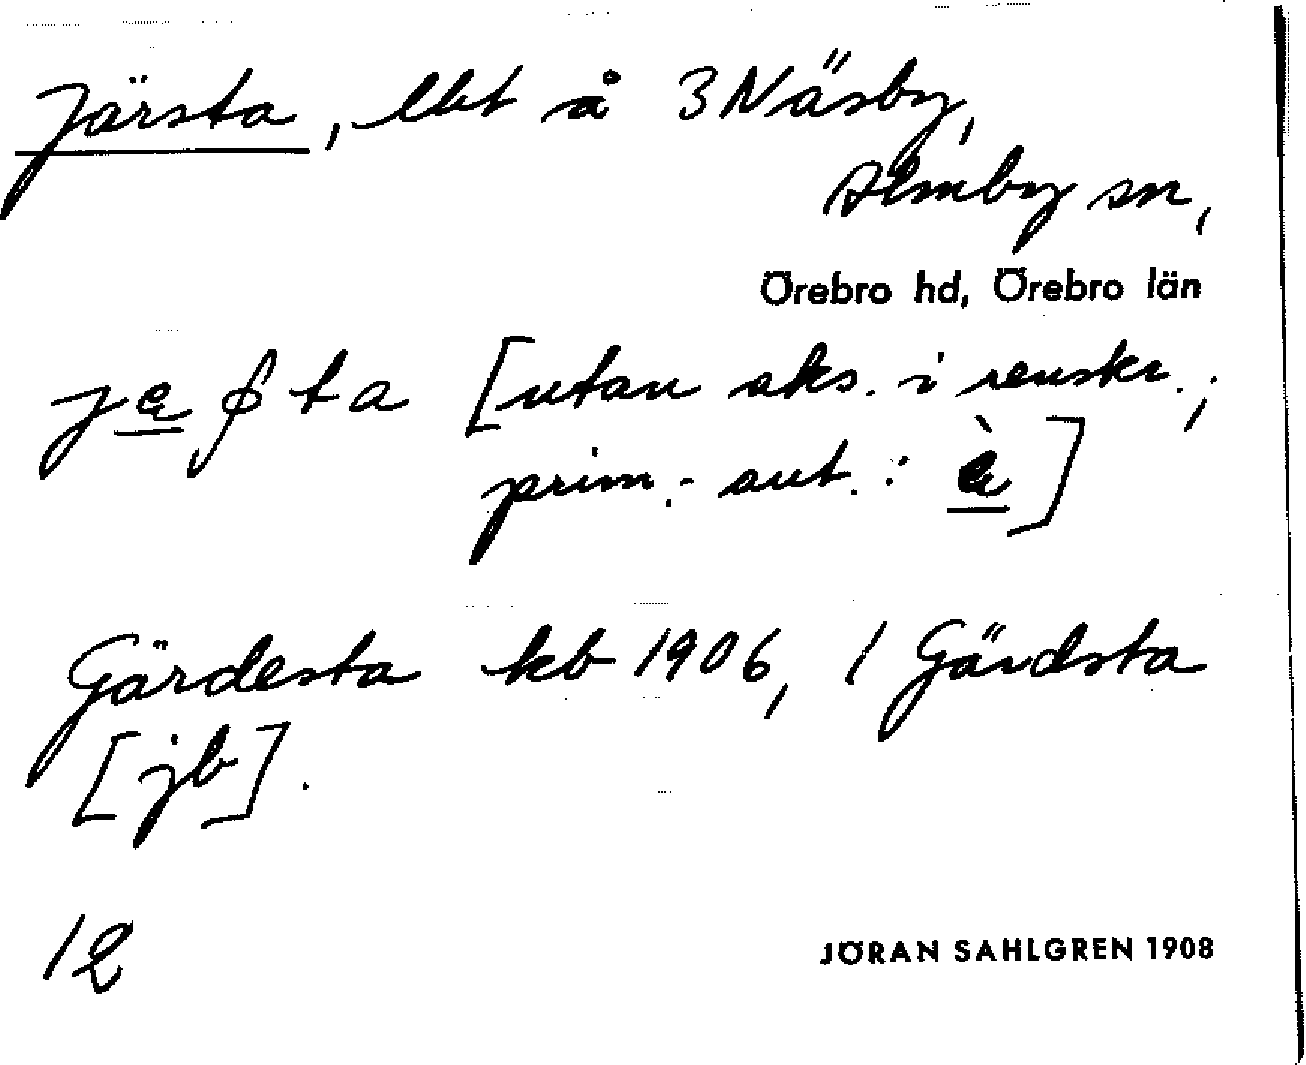 Järsta, lht å 3 Näsby,
Almby sn,
Örebro hd, Örebro län
ta [utan aks. i renskr.;
prim.-ant.: ]
Gärdesta kb 1906, 1 Gärdsta
[jb].
12
JÖRAN SAHLGREN 1908